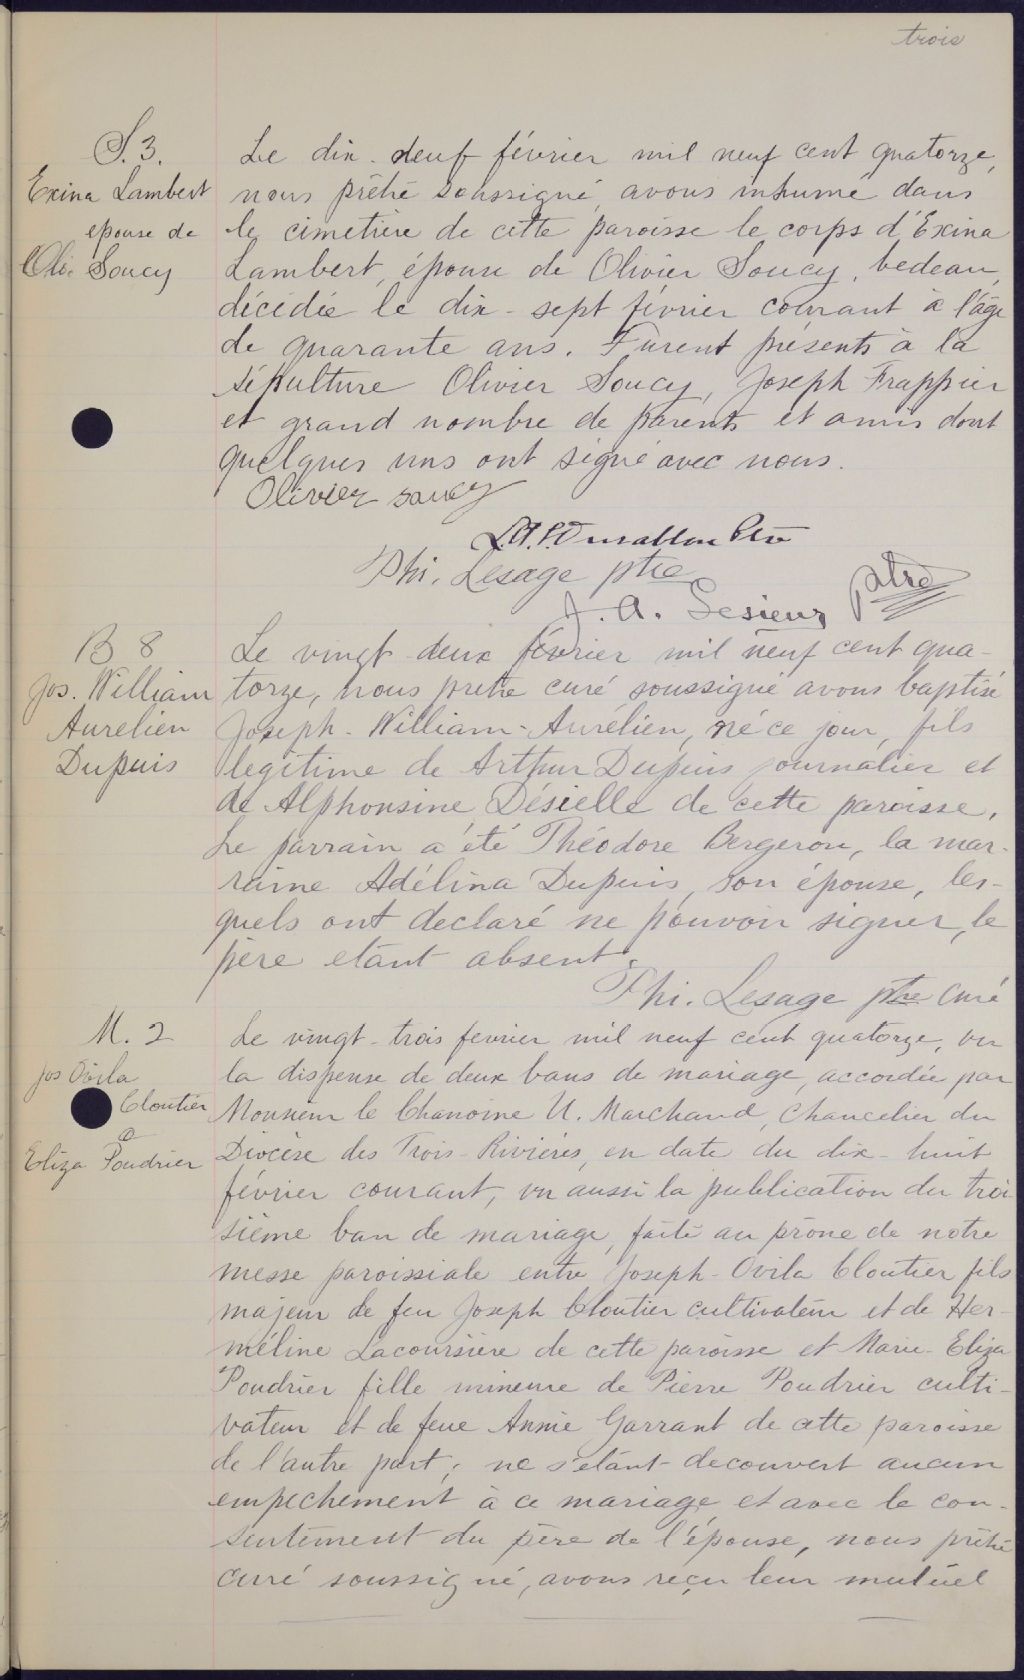 trois
S. 3.
Exina Lambert
epouse de
Oliv. Soucy
Le dix-neuf février mil neuf cent quatorze,
nous prêtre soussigné, avons inhumé dans
le cimetière de cette paroisse le corps d'Exina
Lambert, épouse de Olivier Soucy, bedeau,
décédée le dix-sept février courant à l'âge
de quarante ans. Furent présents à la
sépulture Olivier Soucy, Joseph Frappier
et grand nombre de parents et amis dont
quelques uns ont signé avec nous.
Olivier Soucy
Ptre
Phi. Lesage ptre
J. A. Lesieur ptre
B 8
Jos. William
Aurelien
Dupuis
Le vingt-deux février mil neuf cent qua-
torze, nous pretre curé soussigné avons baptisé
Joseph-William-Aurélien, né ce jour, fils
legitime de Arthur Dupuis journalier et
de Alphonsine Désielle de cette paroisse.
Le parrain a été Théodore Bergeron, la mar-
raine Adélina Dupuis, son épouse, les-
quels ont declaré ne pouvoir signer, le
père etant absent.
Phi. Lesage ptre curé
M. 2
Jos Ovila
Cloutier
&
Eliza Poudrier
Le vingt-trois fevrier mil neuf cent quatorze, vu
la dispense de deux bans de mariage accordée par
Monsieur le Chanoine U. Marchand, Chancelier du
Diocèse des Trois-Rivières, en date du dix-huit
février courant, vu aussi la publication du troi-
sième ban de mariage, faite au prône de notre
messe paroissiale entre Joseph-Ovila Cloutier fils
majeur de feu Joseph Cloutier cultivateur et de Her-
méline Lacoursière de cette paroisse et Marie-Eliza
Poudrier fille mineure de Pierre Poudrier culti-
vateur et de feue Annie Garrant de cette paroisse
de l'autre part; ne s'etant decouvert aucun
empechement à ce mariage et avec le con-
sentement du père de l'épouse, nous prêtre
curé soussigné, avons reçu leur mutuel